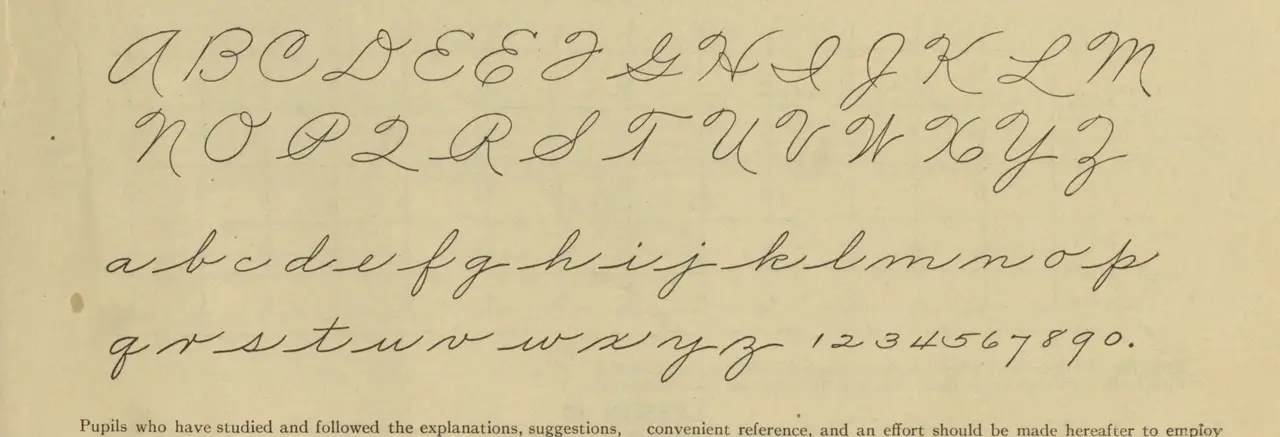 A B C D E E F G H I J K L M
N O P Q R S T U V W X Y Z
a b c d e f g h i j k l m n o p
q r s t u v w x y z 1 2 3 4 5 6 7 8 9 0.
Pupils who have studied and followed the explanations, suggestions,
convenient reference, and an effort should be made hereafter to employ